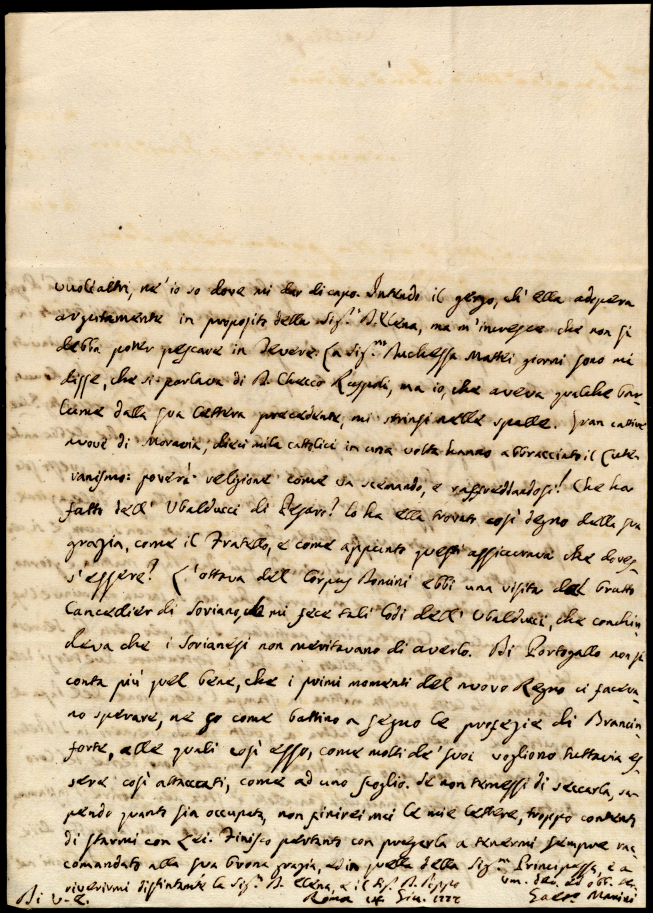 vuol altri, ne' io so dove mi dar di capo. Intendo il gergo, ch'ella adopera
argutamente in proposito della Sig.ra D. Elena, ma m'incresce che non si
debba poter pescare in Tevere. La Sig.ra Duchessa Mattei giorni sono mi
disse, che si parlava di D. Checco Ruspoli, ma io, che aveva qualche bar-
lume dalla sua lettera precedente, mi strinsi nelle spalle. Gran cattive
nuove di Moravia; dieci mila cattolici in una volta hanno abbracciato il Lute-
ranismo: povera religione come va scemando, e raffreddandosi! Che ha
fatto dell' Ubalducci di Pesaro? lo ha ella trovato così degno della sua
grazia, come il Fratello, e come appunto questi assicurava che doves-
s'essere? L'ottava del Corpus Domini ebbi una visita dal brutto
Cancellier di Soriano, che mi fece tali lodi dell' Ubalducci, che conchiu-
deva che i Sorianesi non meritavano di averlo. Di Portogallo non si
conta più quel bene, che i primi momenti del nuovo Regno ci faceva-
no sperare, ne so come battino a segno le profezie di Brancin-
forte, alle quali così esso, come molti de' suoi vogliono tuttavia es-
sere così attaccati, come ad uno scoglio. Se non temessi di seccarla, sa-
pendo quanto sia occupata, non finirei mai le mie lettere, troppo contento
di starmi con Lei. Finisco pertanto con pregarla a tenermi sempre rac-
comandato alla sua buona grazia, ed in quella della Sig.ra Principessa, e a
riverirmi distintam.te la Sig.ra D. Elena, e il Sig. D. Peppe
Di V. E. Roma 14 Giu. 1777
um. dev. ed obb. ser.
Manini